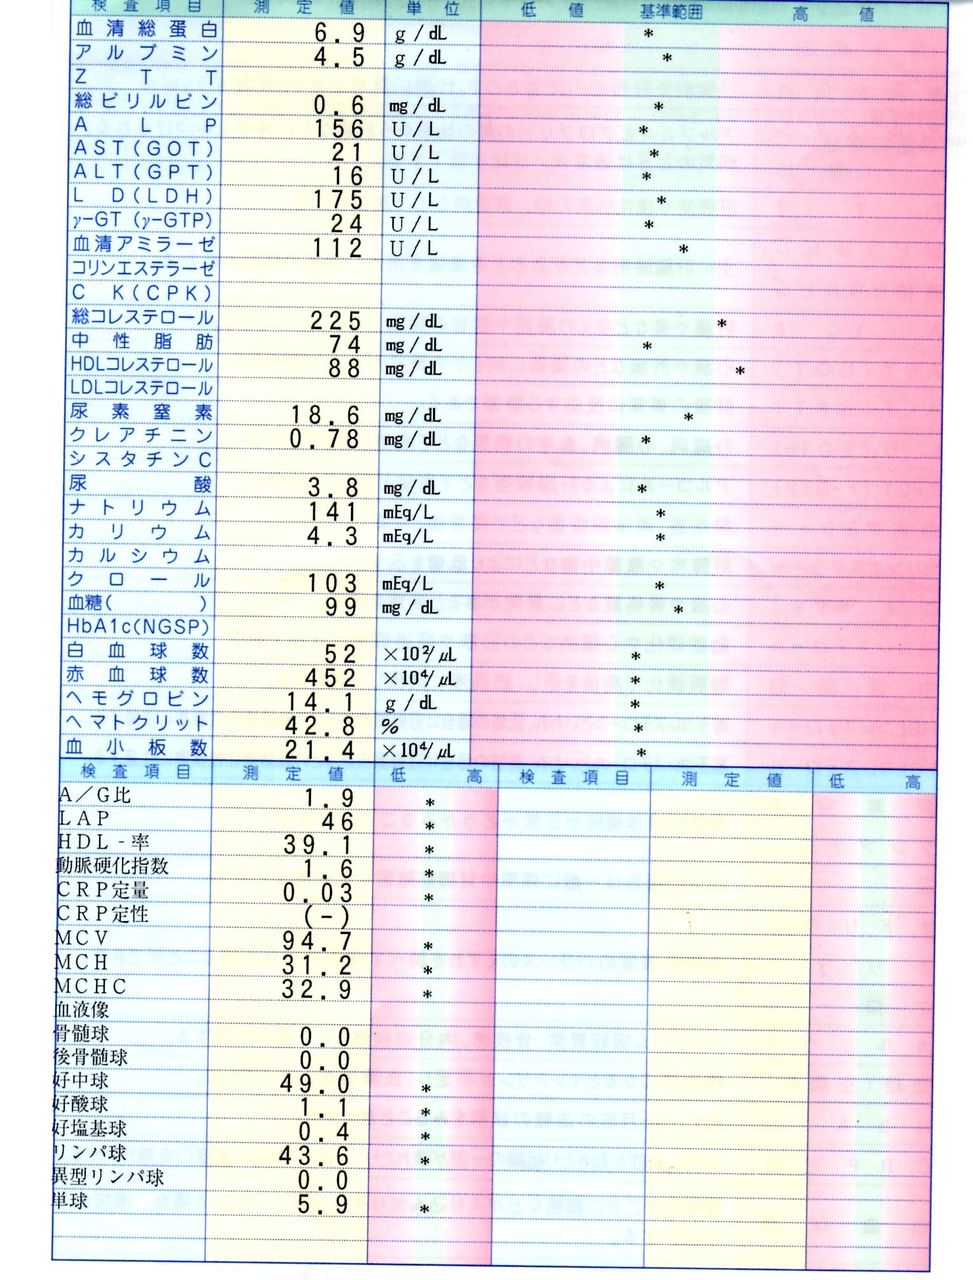 検査項目 測定値 単位 低値 基準範囲 高値
血清総蛋白 6.9 g/dL *
アルブミン 4.5 g/dL *
ZTT
総ビリルビン 0.6 mg/dL *
ALP 156 U/L *
AST(GOT) 21 U/L *
ALT(GPT) 16 U/L *
LD(LDH) 175 U/L *
γ-GT(γ-GTP) 24 U/L *
血清アミラーゼ 112 U/L *
コリンエステラーゼ
CK(CPK)
総コレステロール 225 mg/dL *
中性脂肪 74 mg/dL *
HDLコレステロール 88 mg/dL *
LDLコレステロール
尿素窒素 18.6 mg/dL *
クレアチニン 0.78 mg/dL *
シスタチンC
尿酸 3.8 mg/dL *
ナトリウム 141 mEq/L *
カリウム 4.3 mEq/L *
カルシウム
クロール 103 mEq/L *
血糖( ) 99 mg/dL *
HbA1c(NGSP)
白血球数 52 ×10²/μL *
赤血球数 452 ×10⁴/μL *
ヘモグロビン 14.1 g/dL *
ヘマトクリット 42.8 % *
血小板数 21.4 ×10⁴/μL *
検査項目 測定値 低 高 検査項目 測定値 低 高
A/G比 1.9 *
LAP 46 *
HDL-率 39.1 *
動脈硬化指数 1.6 *
CRP定量 0.03 *
CRP定性 (-)
MCV 94.7 *
MCH 31.2 *
MCHC 32.9 *
血液像
骨髄球 0.0
後骨髄球 0.0
好中球 49.0 *
好酸球 1.1 *
好塩基球 0.4 *
リンパ球 43.6 *
異型リンパ球 0.0
単球 5.9 *